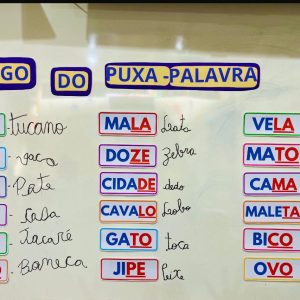 GO DO PUXA-PALAVRA
tucano MALA Lata VELA
vaca DOZE Zebra MATO
CIDADE dado CAMA
casa CAVALO Lobo MALETA
Jacaré GATO toca BICO
Boneca JIPE Peixe OVO